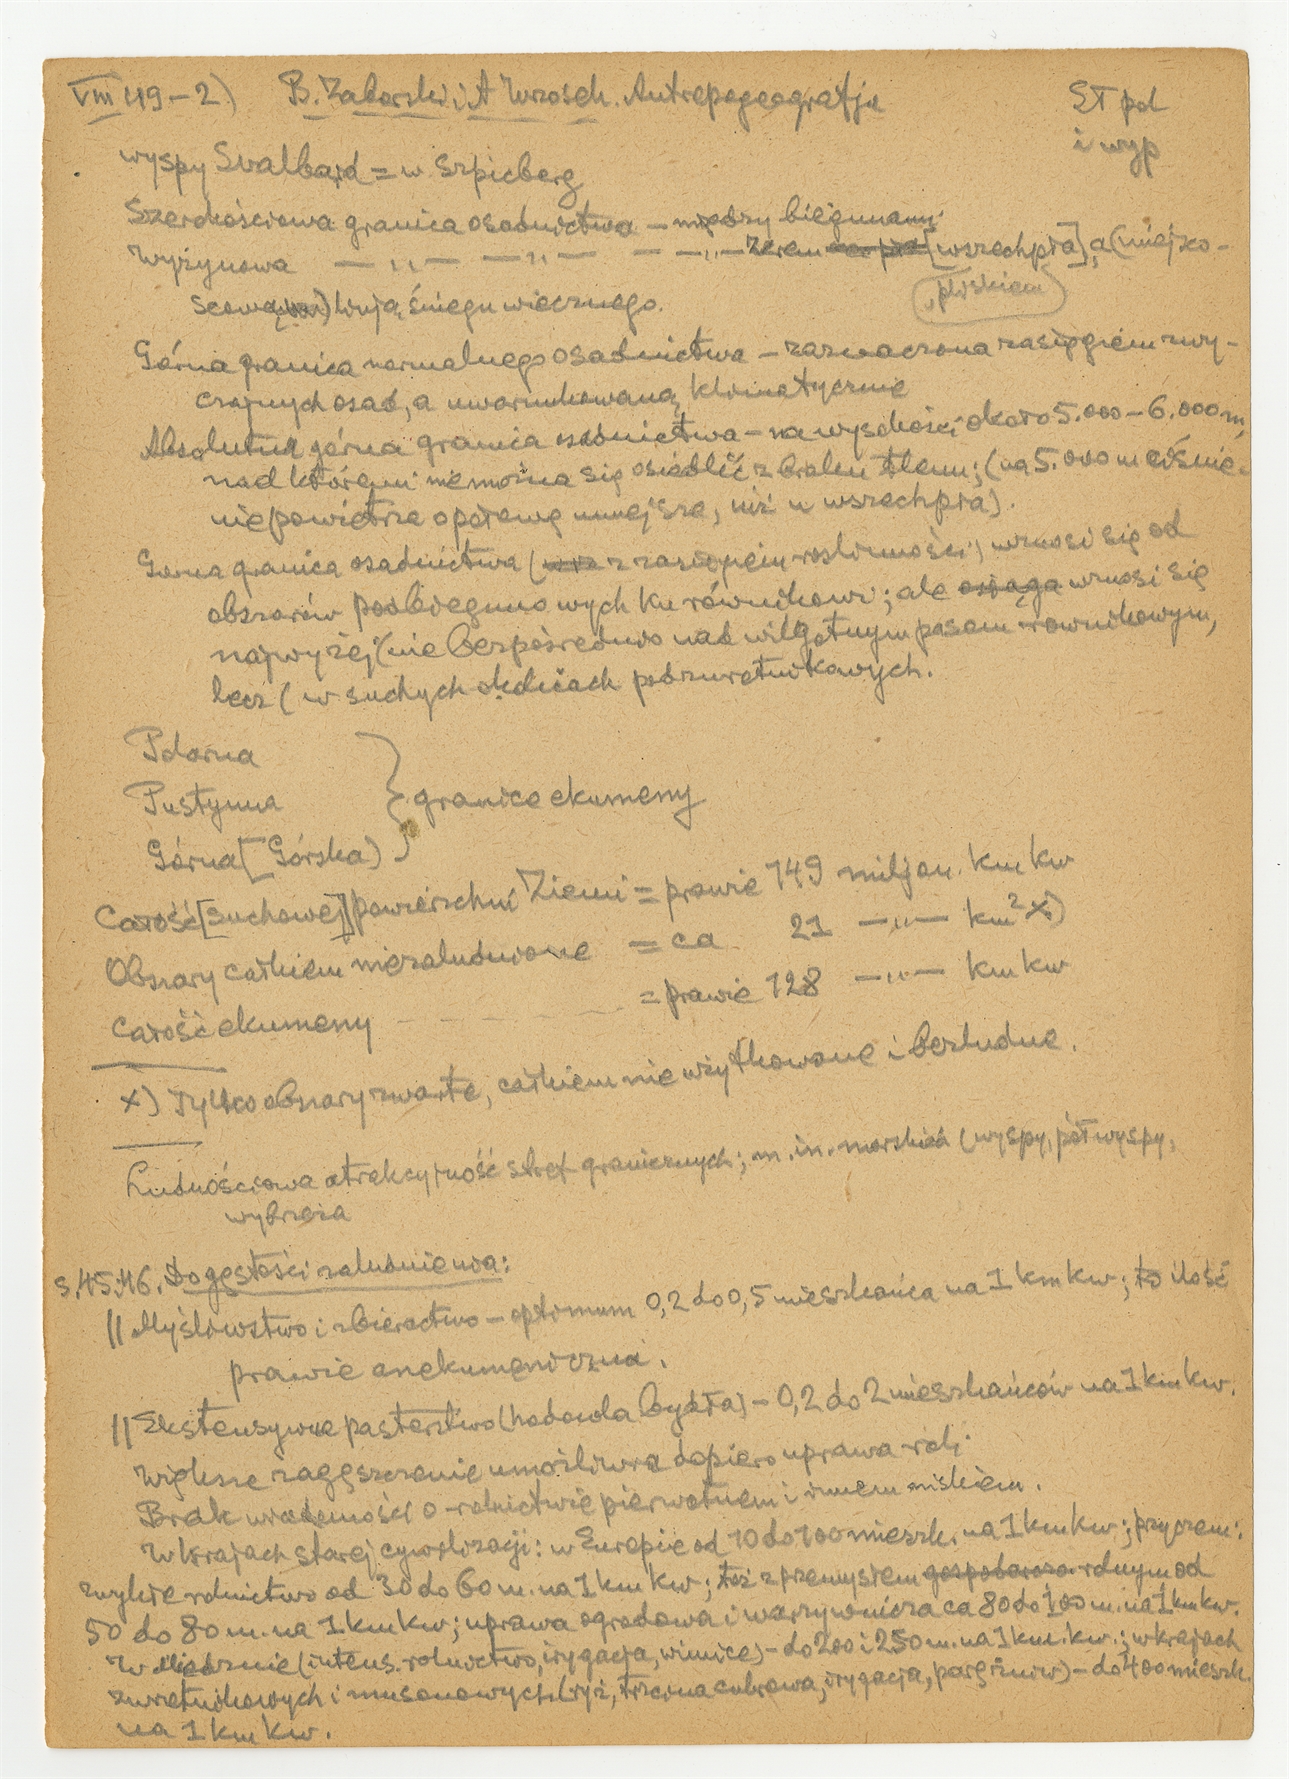 VIII 49 – 2) B. Zaborski i A Wrzosek. Antropogeografja
ST pol
i wyp
wyspy Svalbard = w. Szpicberg
Szerokościowa granica osadnictwa – między biegunami
Wyżynowa — „ — — „ — — „ — [wszechpła], a (miejsco-
płaskiem
scową) linją śniegu wiecznego.
Górna granica normalnego osadnictwa – zaznaczona zasięgiem zwy-
czajnych osad, a uwarunkowaną klimatycznie
Absolutna górna granica osadnictwa – na wysokości około 5.000 – 6.000 m,
nad któremi nie można się osiedlić z braku tlenu; (na 5.000 m ciśnie-
nie powietrza o połowę mniejsze, niż u wszechpła).
Górna granica osadnictwa (z zasięgiem roślinności) wznosi się od
obszarów podbiegunowych ku równikowi; ale osiąga wznosi się
najwyżej (nie bezpośrednio nad wilgotnym pasem równikowym,
lecz (w suchych okolicach podzwrotnikowych.
Polarna
Pustynna } granice ekumeny
Górna [Górska)
Całość [suchowej] powierzchni Ziemi = prawie 149 miljon. km kw
Obszary całkiem niezaludnione = ca 21 — „ — km² x)
Całość ekumeny – – – – – = prawie 128 — „ — km kw
x) Tylko obszary zwarte, całkiem nie użytkowane i bezludne.
Ludnościowa atrakcyjność stref granicznych; m. in. morskich (wyspy, półwyspy,
wybrzeża
s. 45.46. Do gęstości zaludnienia:
|| Myśliwstwo i zbieractwo – optimum 0,2 do 0,5 mieszkańca na 1 km kw; to ilość
prawie anekumeniczna.
|| Ekstensywne pasterstwo (hodowla bydła) – 0,2 do 2 mieszkańców na 1 km kw.
Większe zagęszczenie umożliwia dopiero uprawa roli.
Brak wiadomości o rolnictwie pierwotnem i innem niskiem.
W krajach starej cywilizacji: w Europie od 10 do 100 mieszk. na 1 km kw; przyczem:
zwykłe rolnictwo od 30 do 60 m. na 1 km kw; też z przemysłem gospodarczo rolnym od
50 do 80 m. na 1 km kw; uprawa ogrodowa i warzywnicza ca 80 do 100 m. na 1 km kw.
W (intens. rolnictwo, irygacja, winnice) – do 200 i 250 m. na 1 km. kw.; w krajach
zwrotnikowych i musonowych (ryż, trzcina cukrowa, irygacja, parę żniw) – do 400 mieszk.
na 1 km kw.